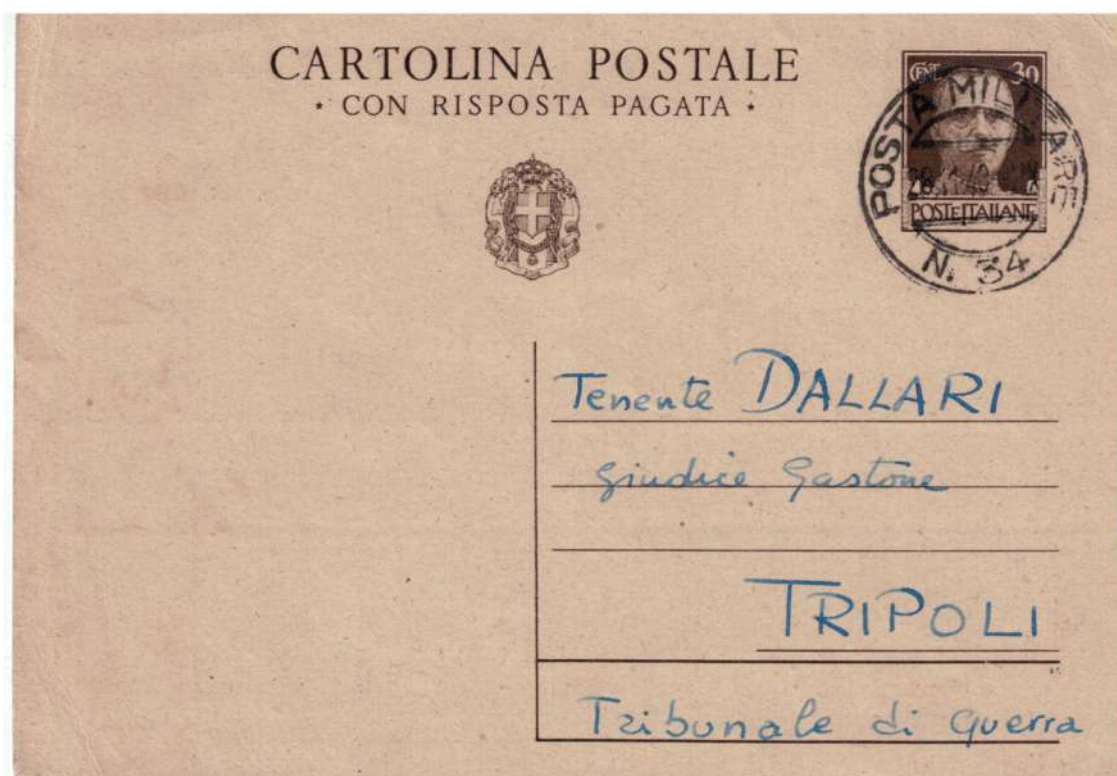 CARTOLINA POSTALE
• CON RISPOSTA PAGATA •
CENT. 30
POSTA MILITARE
POSTE ITALIANE
N. 34
Tenente DALLARI
Giudice Gastone
TRIPOLI
Tribunale di Guerra